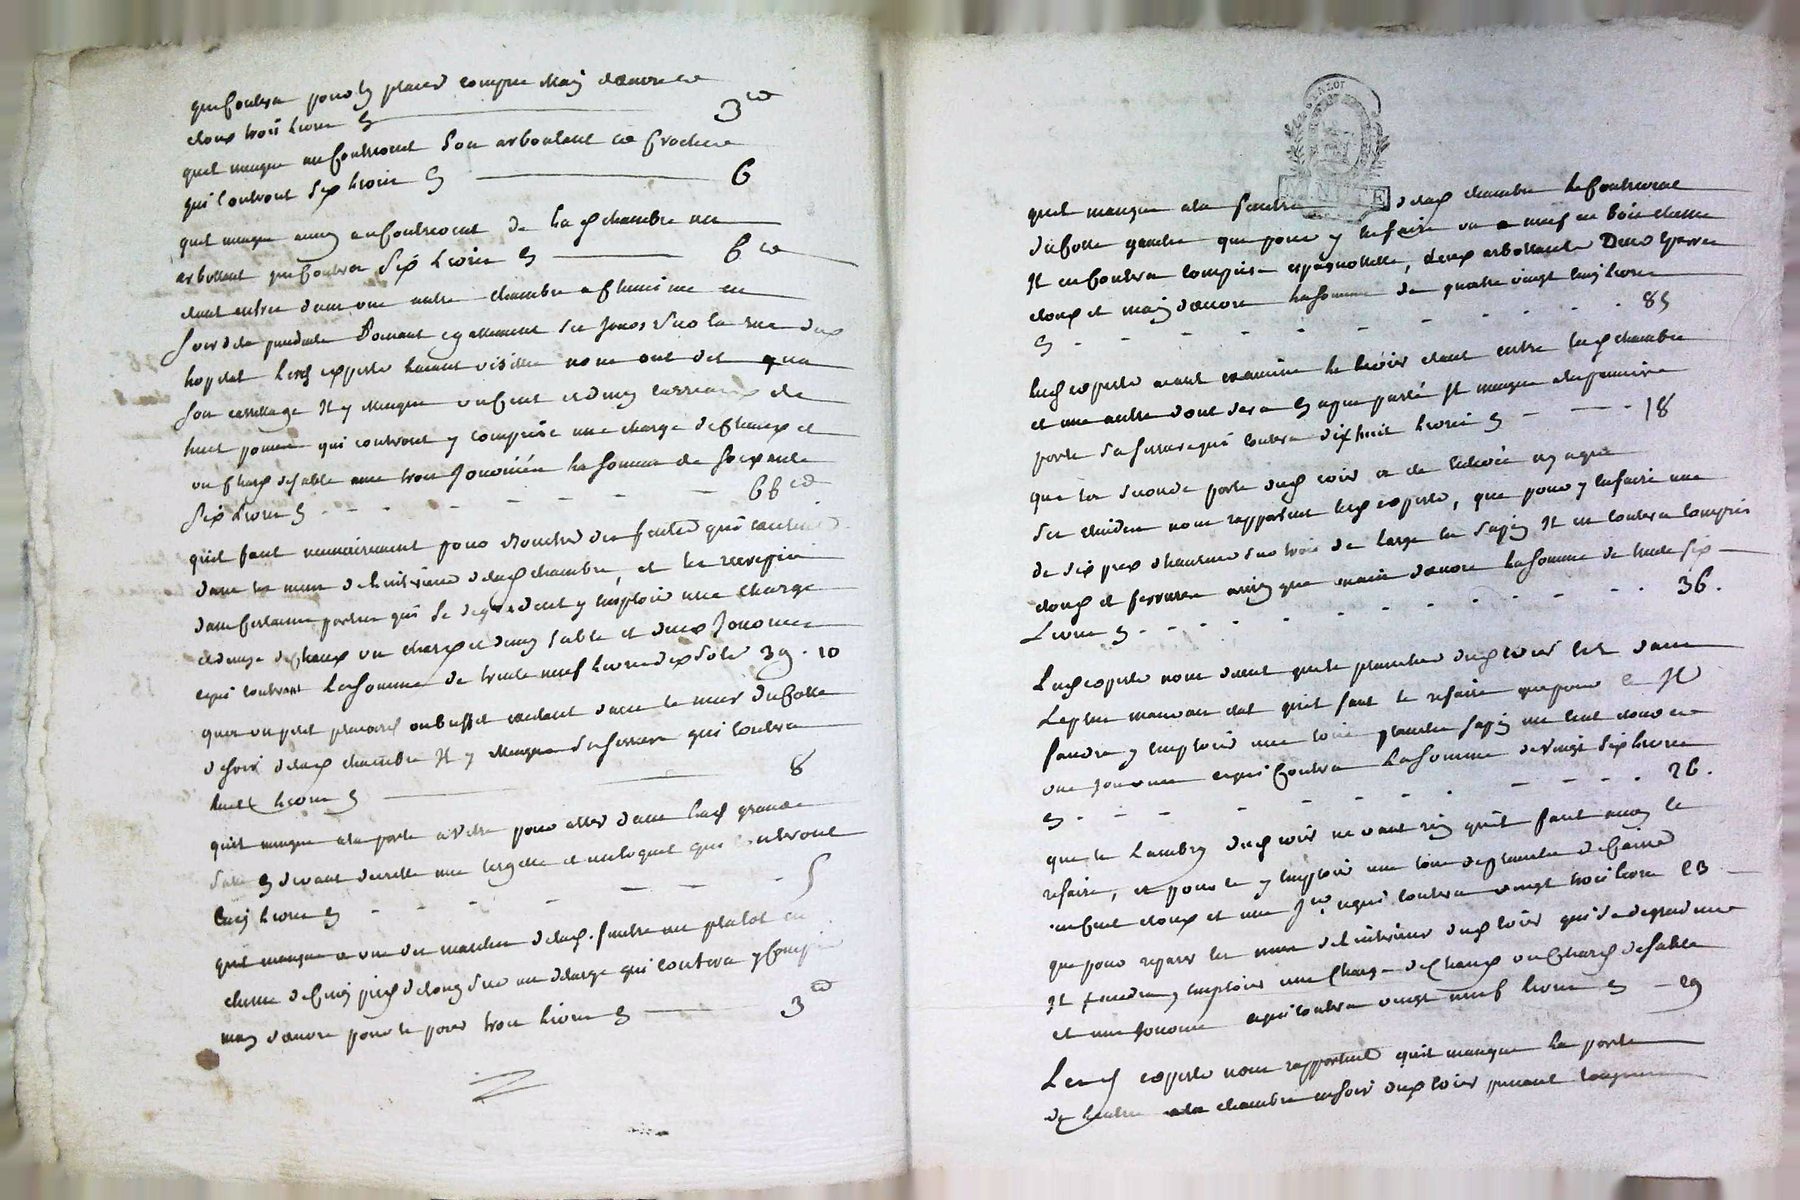 que coutera pour les placer compris main d'œuvre et
cloux trois livres 3ᵗᵗ
quil manque au contrevent son arboutant et crochet
qui coutront six livres 6
quil manque aussy au contrevent de lad chambre un
arboutant que coutera six livres 6ᵗᵗ
etant entrés dans une autre chambre a cheminée en
suitte de precedente prenant egallement ses jours sur la rue dud
hopital lesd experts layant visittée nous ont dit qua
son carrellage Il y manque un cent et demy carreaux de
huit pouces qui coutront y compris une charge de chaux et
un charge de sable avec trois journées la somme de soixante
six livres 66ᵗᵗ
quil faut necessairement pour boucher des fentes qui
dans les murs de linterieur de lad chambre, et les recrepir
dans certaines parties qui se degradent y emploier une charge
et demye de chaux un charge et demy sable et deux journées
ce qui coutront la somme de trente neuf livres dix sols 39 . 10
que un petit placard ou buffet dans le mur du cotté
de soir de lad chambre Il y manque sa serrure qui coutera
huit livres 8
quil manque a la porte a vitre pour aller dans lad grande
salle devant une targette et un loquet qui coutront
cinq livres 5
quil manque a une des marches de lad. fenetre un platot en
chene de cinq pieds de long sur un de large qui coutera y compris
main d'œuvre pour le poser trois livres 3ᵗᵗ
quil manque a la fenetre de lad chambre le contrevent
du cotté gauche que pour y refaire un a neuf en bois chene
Il en coutera compris espagnollette, deux arboutants
cloux et main d'œuvre la somme de quatre vingt cinq livres
85
lesd experts aiant examiné le couoir etant entre lad chambre
et une autre dont sera apres parlé Il manque a la premiere
porte sa serrure qui coutera dix huit livres 18
que la seconde porte dud couoir
nous rapportent lesd experts, que pour y en faire une
de six pieds hauteur sur trois de large en sapin Il en coutera compris
cloux et ferrures ainsy que main d'œuvre la somme de trente six
livres 36.
Lesd experts nous disent que le plancher dud couoir est dans
le plus mauvais etat quil faut le refaire que pour ce Il
faudra y emploier une toise planches sapin un cent cloux et
une journée ce qui coutera la somme de vingt six livres
26.
que le lambry dud couoir ne vaut rien quil faut aussy le
refaire, et pour ce y emploier une toise de planches
un cent cloux et une jrée ce qui coutera vingt trois livres 23
que pour reparer les murs de linterieur dud couoir qui se degradent
Il faudra y emploier une charge de chaux un charge de sable
et une journée ce qui coutera vingt neuf livres 29
Lesd experts nous rapportent quil manque la porte
de lentrée a la chambre en soir dud couoir prenant